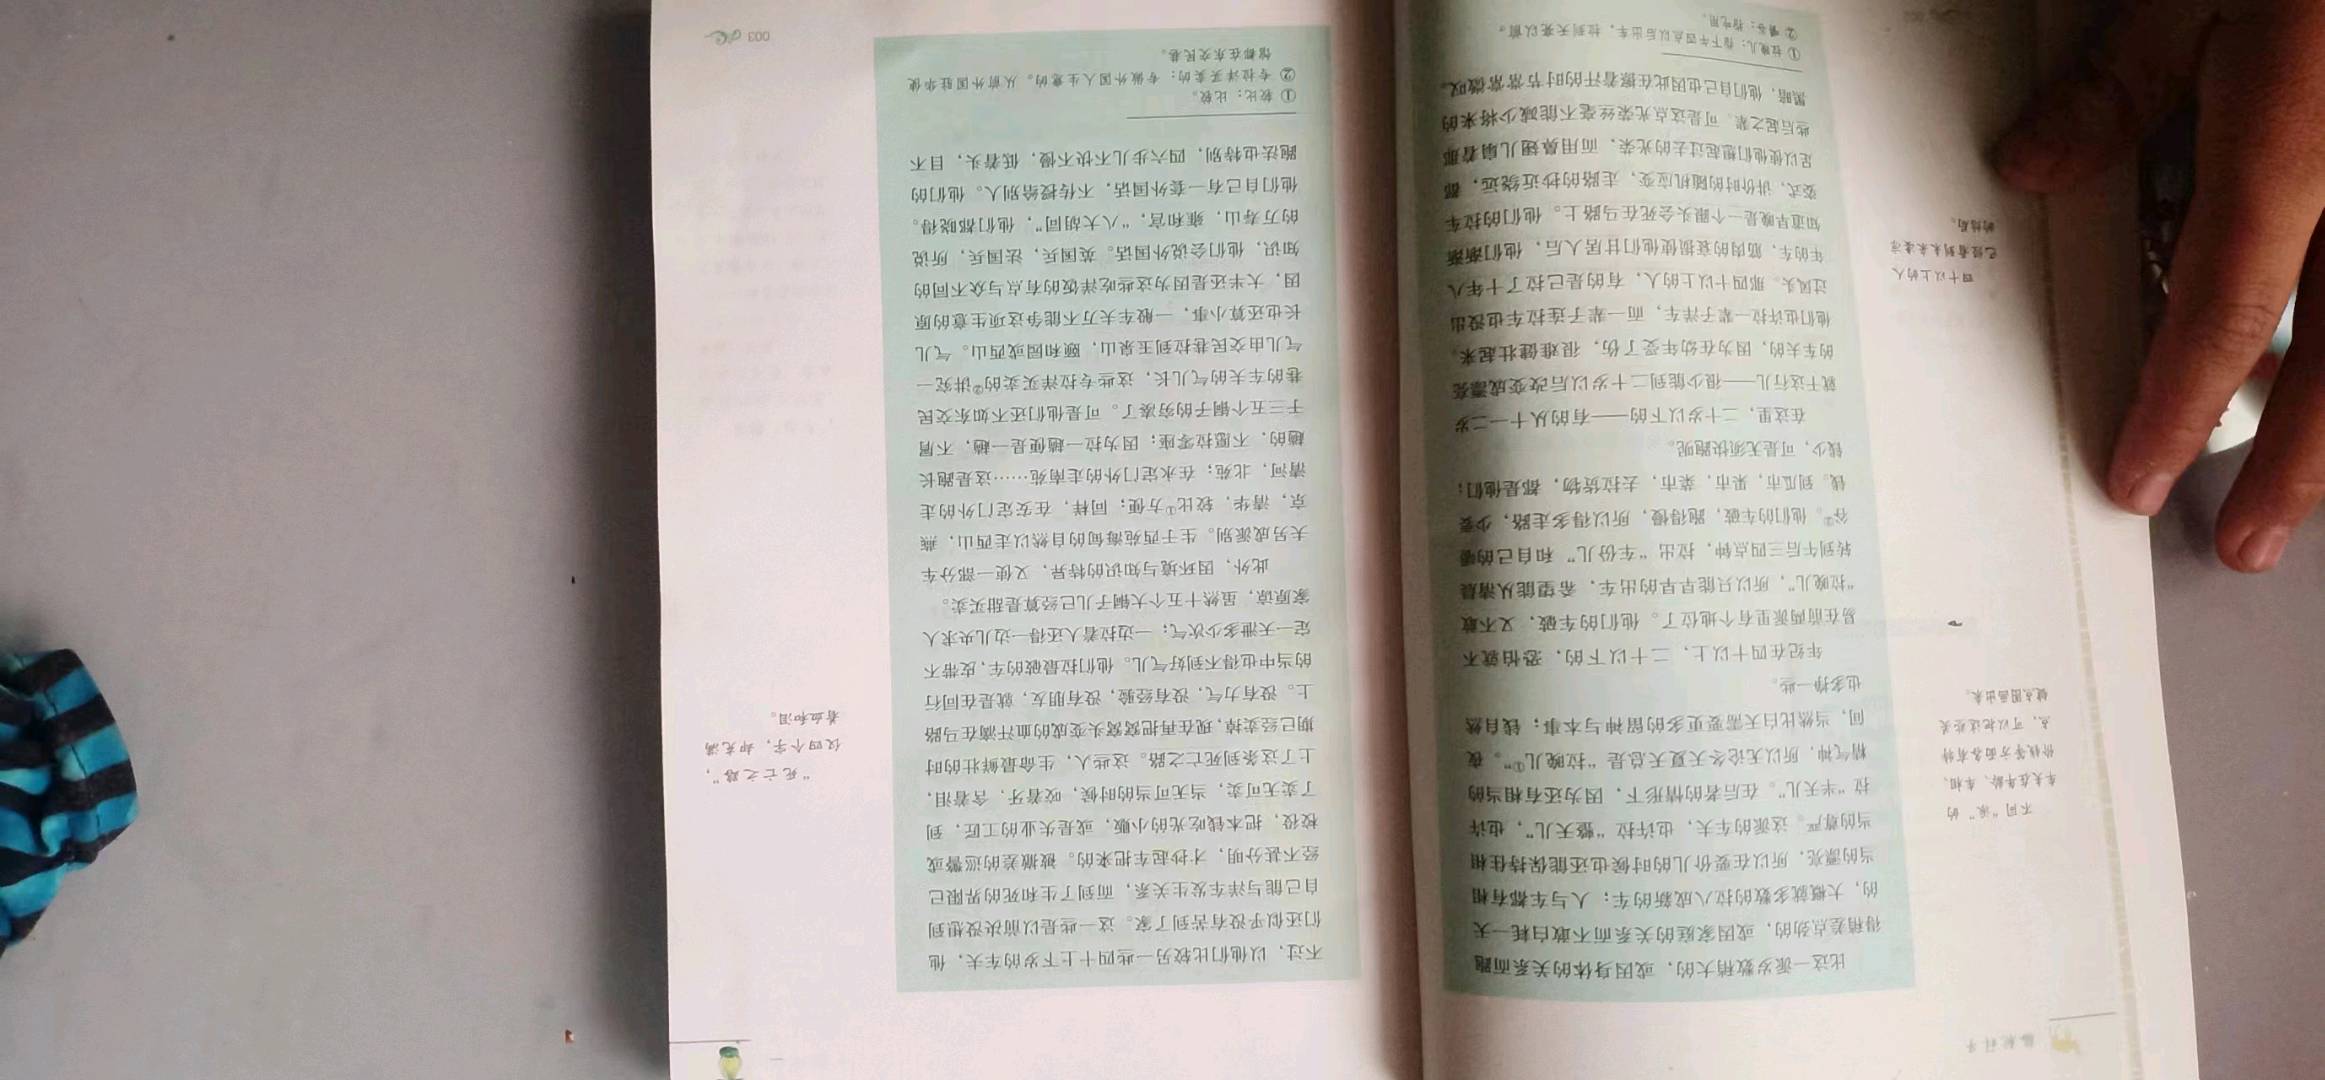 骆驼祥子
比这一派岁数稍大的，或因身体的关系而跑
得稍差点劲的，或因家庭的关系而不敢白耗一天
的，大概就多数的拉八成新的车；人与车都有相
当的漂亮，所以在要价儿的时候也还能保持住相
当的尊严。这派的车夫，也许拉“整天儿”，也许
拉“半天儿”。在后者的情形下，因为还有相当的
精气神，所以无论冬天夏天总是“拉晚儿①”。夜
间，当然比白天需要更多的留神与本事；钱自然
也多挣一些。
年纪在四十以上，二十以下的，恐怕就不
易在前两派里有个地位了。他们的车破，又不敢
“拉晚儿”，所以只能早早的出车，希望能从清晨
转到午后三四点钟，拉出“车份儿”和自己的嚼
谷②。他们的车破，跑得慢，所以得多走路，少要
钱。到瓜市，果市，菜市，去拉货物，都是他们；
钱少，可是无须快跑呢。
在这里，二十岁以下的——有的从十一二岁
就干这行儿——很少能到二十岁以后改变成漂亮
的车夫的，因为在幼年受了伤，很难健壮起来。
他们也许拉一辈子洋车，而一辈子连拉车也没出
过风头。那四十以上的人，有的是已拉了十年八
年的车，筋肉的衰损使他们甘居人后，他们渐渐
知道早晚是一个跟头会死在马路上。他们的拉车
姿式，讲价时的随机应变，走路的抄近绕远，都
足以使他们想起过去的光荣，而用鼻翅儿扇着那
些后起之辈。可是这点光荣丝毫不能减少将来的
黑暗，他们自己也因此在擦着汗的时节常常微叹。
①拉晚儿：指下午四点以后出车，拉到天亮以前。
②嚼谷：指吃用。
不同“派”的
车夫在年龄、车相、
价钱等方面各有特
点，可以把这些关
键点圈画出来。
四十以上的人
已经看到未来凄凉
的结局。
不过，以他们比较另一些四十上下岁的车夫，他
们还似乎没有苦到了家。这一些是以前决没想到
自己能与洋车发生关系，而到了生和死的界限已
经不甚分明，才抄起车把来的。被撤差的巡警或
校役，把本钱吃光的小贩，或是失业的工匠，到
了卖无可卖，当无可当的时候，咬着牙，含着泪，
上了这条到死亡之路。这些人，生命最鲜壮的时
期已经卖掉，现在再把窝窝头变成的血汗滴在马路
上。没有力气，没有经验，没有朋友，就是在同行
的当中也得不到好气儿。他们拉最破的车，皮带不
定一天泄多少次气；一边拉着人还得一边儿央求人
家原谅，虽然十五个大铜子儿已经算是甜买卖。
此外，因环境与知识的特异，又使一部分车
夫另成派别。生于西苑海甸的自然以走西山，燕
京，清华，较比①方便；同样，在安定门外的走
清河，北苑；在永定门外的走南苑……这是跑长
趟的，不愿拉零座；因为拉一趟便是一趟，不屑
于三五个铜子的穷凑了。可是他们还不如东交民
巷的车夫的气儿长，这些专拉洋买卖的②讲究一
气儿由交民巷拉到玉泉山，颐和园或西山。气儿
长也还算小事，一般车夫万不能争这项生意的原
因，大半还是因为这些吃洋饭的有点与众不同的
知识，他们会说外国话。英国兵，法国兵，所说
的万寿山，雍和宫，“八大胡同”，他们都晓得。
他们自己有一套外国话，不传授给别人。他们的
跑法也特别，四六步儿不快不慢，低着头，目不
①较比：比较。
②专拉洋买卖的：专做外国人生意的。从前外国驻华使
馆都在东交民巷。
“死亡之路”，
仅四个字，却充满
着血和泪。
003